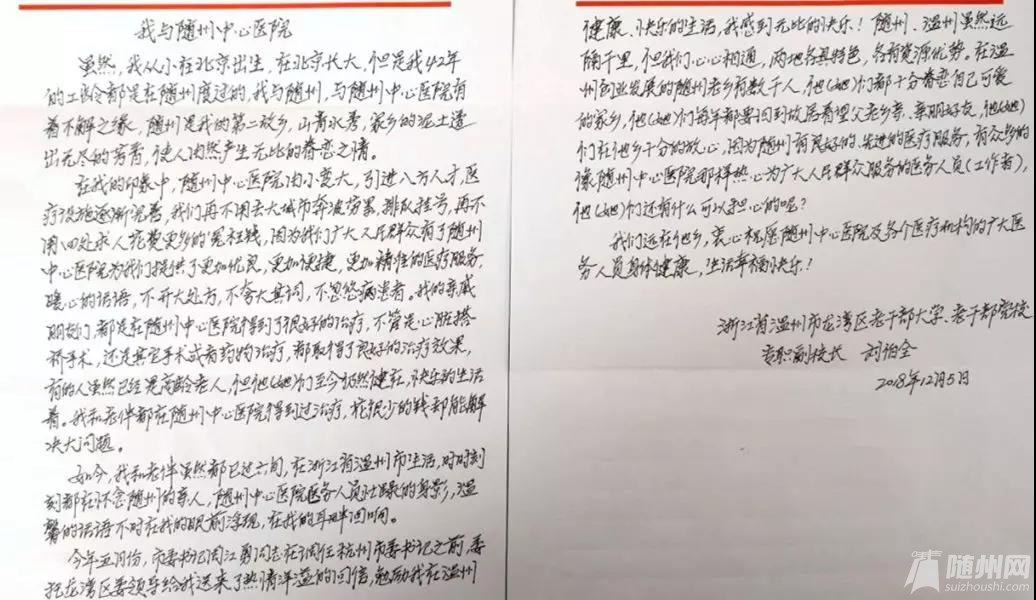 我与随州中心医院
虽然，我从小在北京出生，在北京长大，但是我42年
的工龄都是在随州度过的，我与随州，与随州中心医院有
着不解之缘，随州是我的第二故乡，山青水秀，家乡的泥土透
出无尽的芳香，使人油然产生无比的眷恋之情。
在我的印象中，随州中心医院由小变大，引进八方人才，医
疗设施逐渐完善，我们再不用去大城市奔波劳累，排队挂号，再不
用四处求人花费更多的冤枉钱，因为我们广大人民群众有了随州
中心医院为我们提供了更加优良，更加便捷，更加精准的医疗服务，
暖心的话语，不开大处方，不夸大其词，不忽悠病患者。我的亲戚
朋友们，都是在随州中心医院得到了很好的治疗，不管是心脏搭
桥手术，还是其它手术或者药物治疗，都取得了良好的治疗效果，
有的人虽然已经是高龄老人，但他(她)们至今仍然健在，快乐的生活
着。我和老伴都在随州中心医院得到过治疗，花很少的钱却能解
决大问题。
如今，我和老伴虽然都已过六旬，在浙江省温州市生活，时时刻
刻都在怀念随州的亲人，随州中心医院医务人员忙碌的身影，温
馨的话语不时在我的眼前浮现，在我的耳畔回响。
今年五月份，市委书记周江勇同志在调任杭州市委书记之前，委
托龙湾区委领导给我送来了热情洋溢的回信，勉励我在温州
健康、快乐的生活，我感到无比的快乐！随州、温州虽然远
隔千里，但我们心心相通，两地各具特色，各有资源优势。在温
州创业发展的随州老乡有数千人，他(她)们都十分眷恋自己可爱
的家乡，他(她)们每年都要回到故居看望父老乡亲，亲朋好友，他(她)
们在他乡十分的放心，因为随州有良好的、先进的医疗服务，有众多的
像随州中心医院那样热心为广大人民群众服务的医务人员(工作者)，
他(她)们还有什么可以担心的呢？
我们远在他乡，衷心祝愿随州中心医院及各个医疗机构的广大医
务人员身体健康，生活幸福快乐！
浙江省温州市龙湾区老干部大学、老干部党校
专职副校长 刘伯全
2018年12月5日
随州网
suizhoushi.com